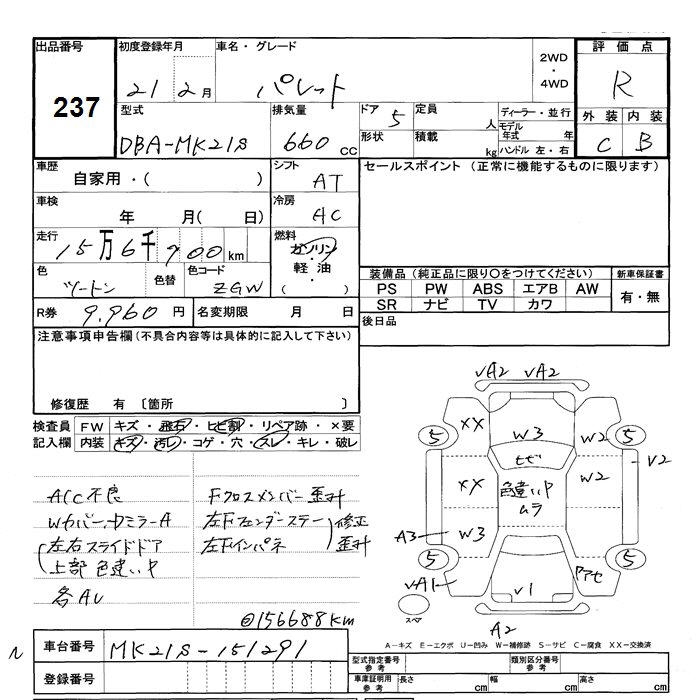 出品番号
237
初度登録年月
21 2月
車名・グレード
パレット
2WD
・
4WD
評価点
R
型式
DBA-MK21S
排気量
660 cc
ドア 5
形状
定員 人
積載 kg
ディーラー・並行
モデル年式 年
ハンドル 左・右
外装 内装
C B
車歴
自家用・( )
シフト
AT
セールスポイント (正常に機能するものに限ります)
車検
年 月( 日)
冷房
AC
走行
15万6千700km
燃料
ガソリン
・
軽油
( )
色
ツートン
色替
色コード
ZGW
装備品 (純正品に限り〇をつけてください)
新車保証書
PS PW ABS エアB AW
有・無
SR ナビ TV カワ
R券 9,960円
名変期限 月 日
後日品
注意事項申告欄(不具合内容等は具体的に記入して下さい)
修復歴 有 〔箇所 〕
検査員 FW キズ・飛石・ヒビ割・リペア跡・×要
記入欄 内装 キズ・汚れ・コゲ・穴・スレ・キレ・破レ
A/C不良
Wカバー,ドミラーA
左右スライドドア
上部 色違い中
各AU
Fクロスメンバー歪み
左Fフェンダーステー
左Fインパネ
修正
歪み
@156688km
√A2 √A2
5 XX W3 W2 5
ヒビ
V2
XX 色違い中 W2
ムラ
A3 W3
5 アセ 5
√A1
√1
スペア
A2
A-キズ E-エクボ U-凹み W-補修跡 S-サビ C-腐食 XX-交換済
車台番号 MK21S-151291
登録番号
型式指定番号
参考
類別区分番号
参考
車庫証明用
参考
長さ cm
幅 cm
高さ cm